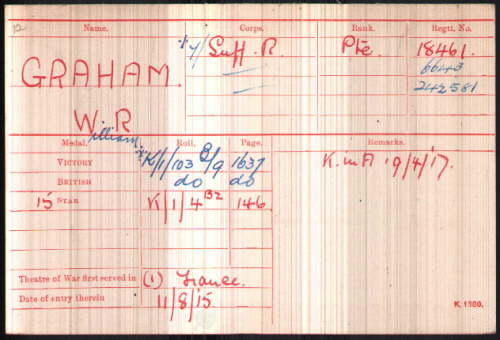 12 Name. Corps. Rank. Regtl. No.
GRAHAM. Suff. R. Pte 18461.
6643
242581
W. R
William
Medal. Roll. Page. Remarks.
VICTORY K/1/103 B/9 1637 K. in A 9/4/17.
BRITISH do do
15 STAR K/1/4 B2 146
Theatre of War first served in (1) France.
Date of entry therein 11/8/15
K. 1380.